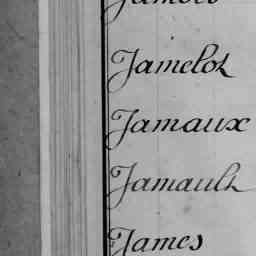 Jamelot
Jamaux
Jamault
James